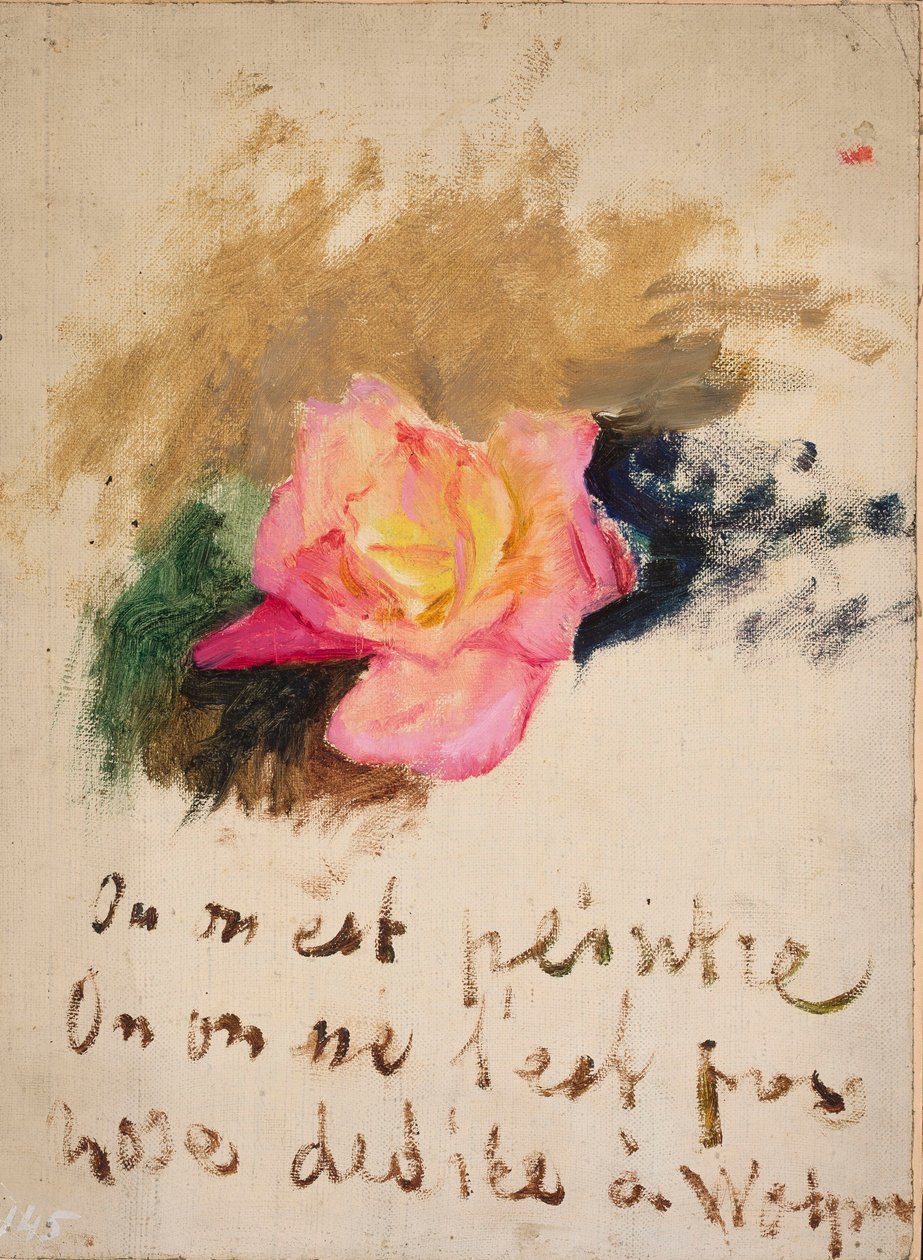 Ou on est peintre
Ou on ne l'est pas
rose dediée à
145